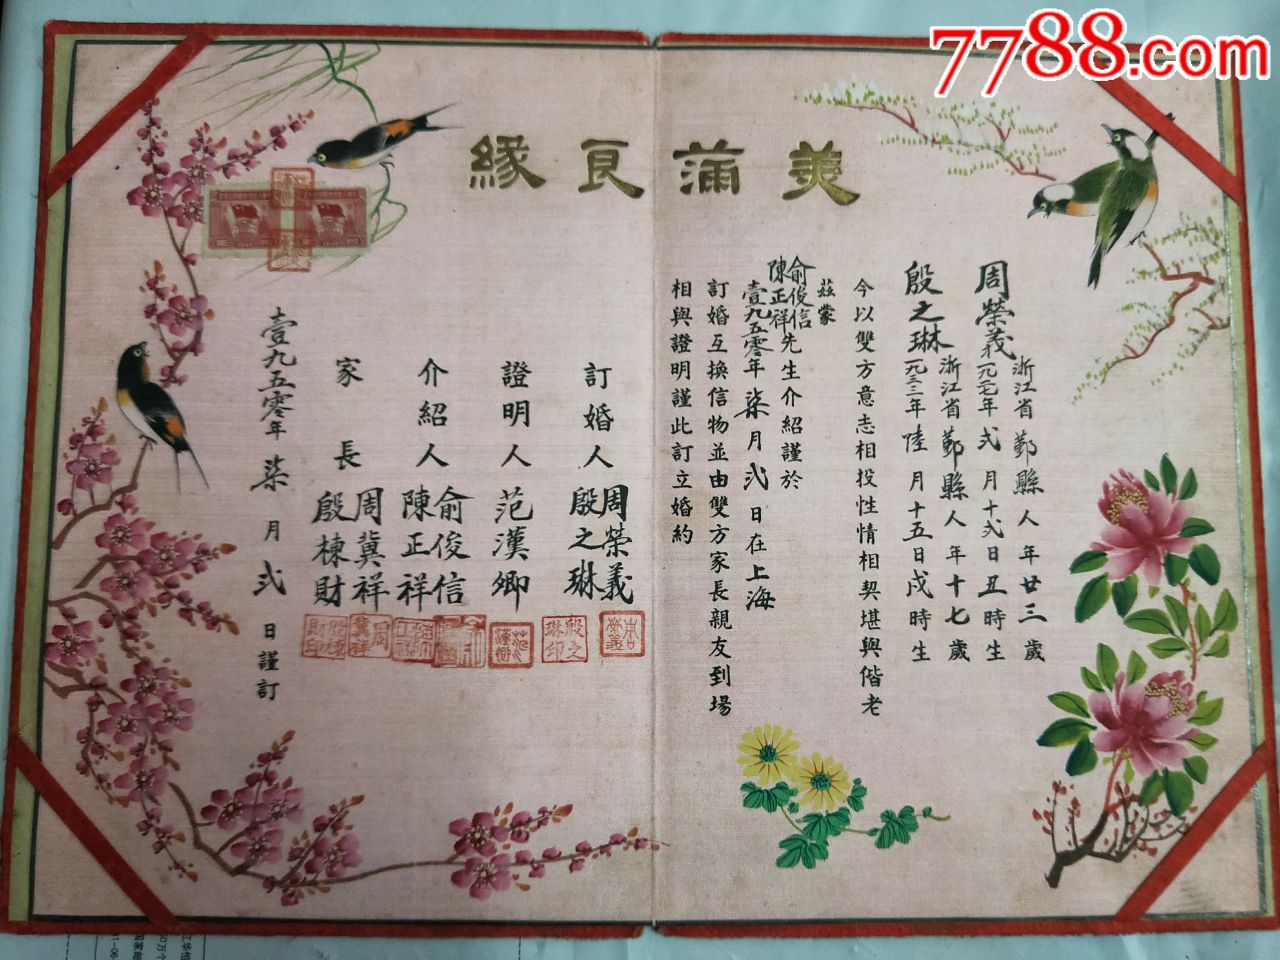 7788.com
美滿良緣
周榮義
浙江省鄞縣人年廿三歲
一九二七年弍月十弍日丑時生
殷之琳
浙江省鄞縣人年十七歲
一九三三年陸月十五日戌時生
今以雙方意志相投性情相契堪與偕老
茲蒙
俞俊信
陳正祥
先生介紹謹於
壹九五零年柒月弍日在上海
訂婚互換信物並由雙方家長親友到場
相與證明謹此訂立婚約
訂婚人
周榮義
殷之琳
證明人
范漢卿
介紹人
俞俊信
陳正祥
家長
周冀祥
殷棟財
壹九五零年柒月弍日謹訂